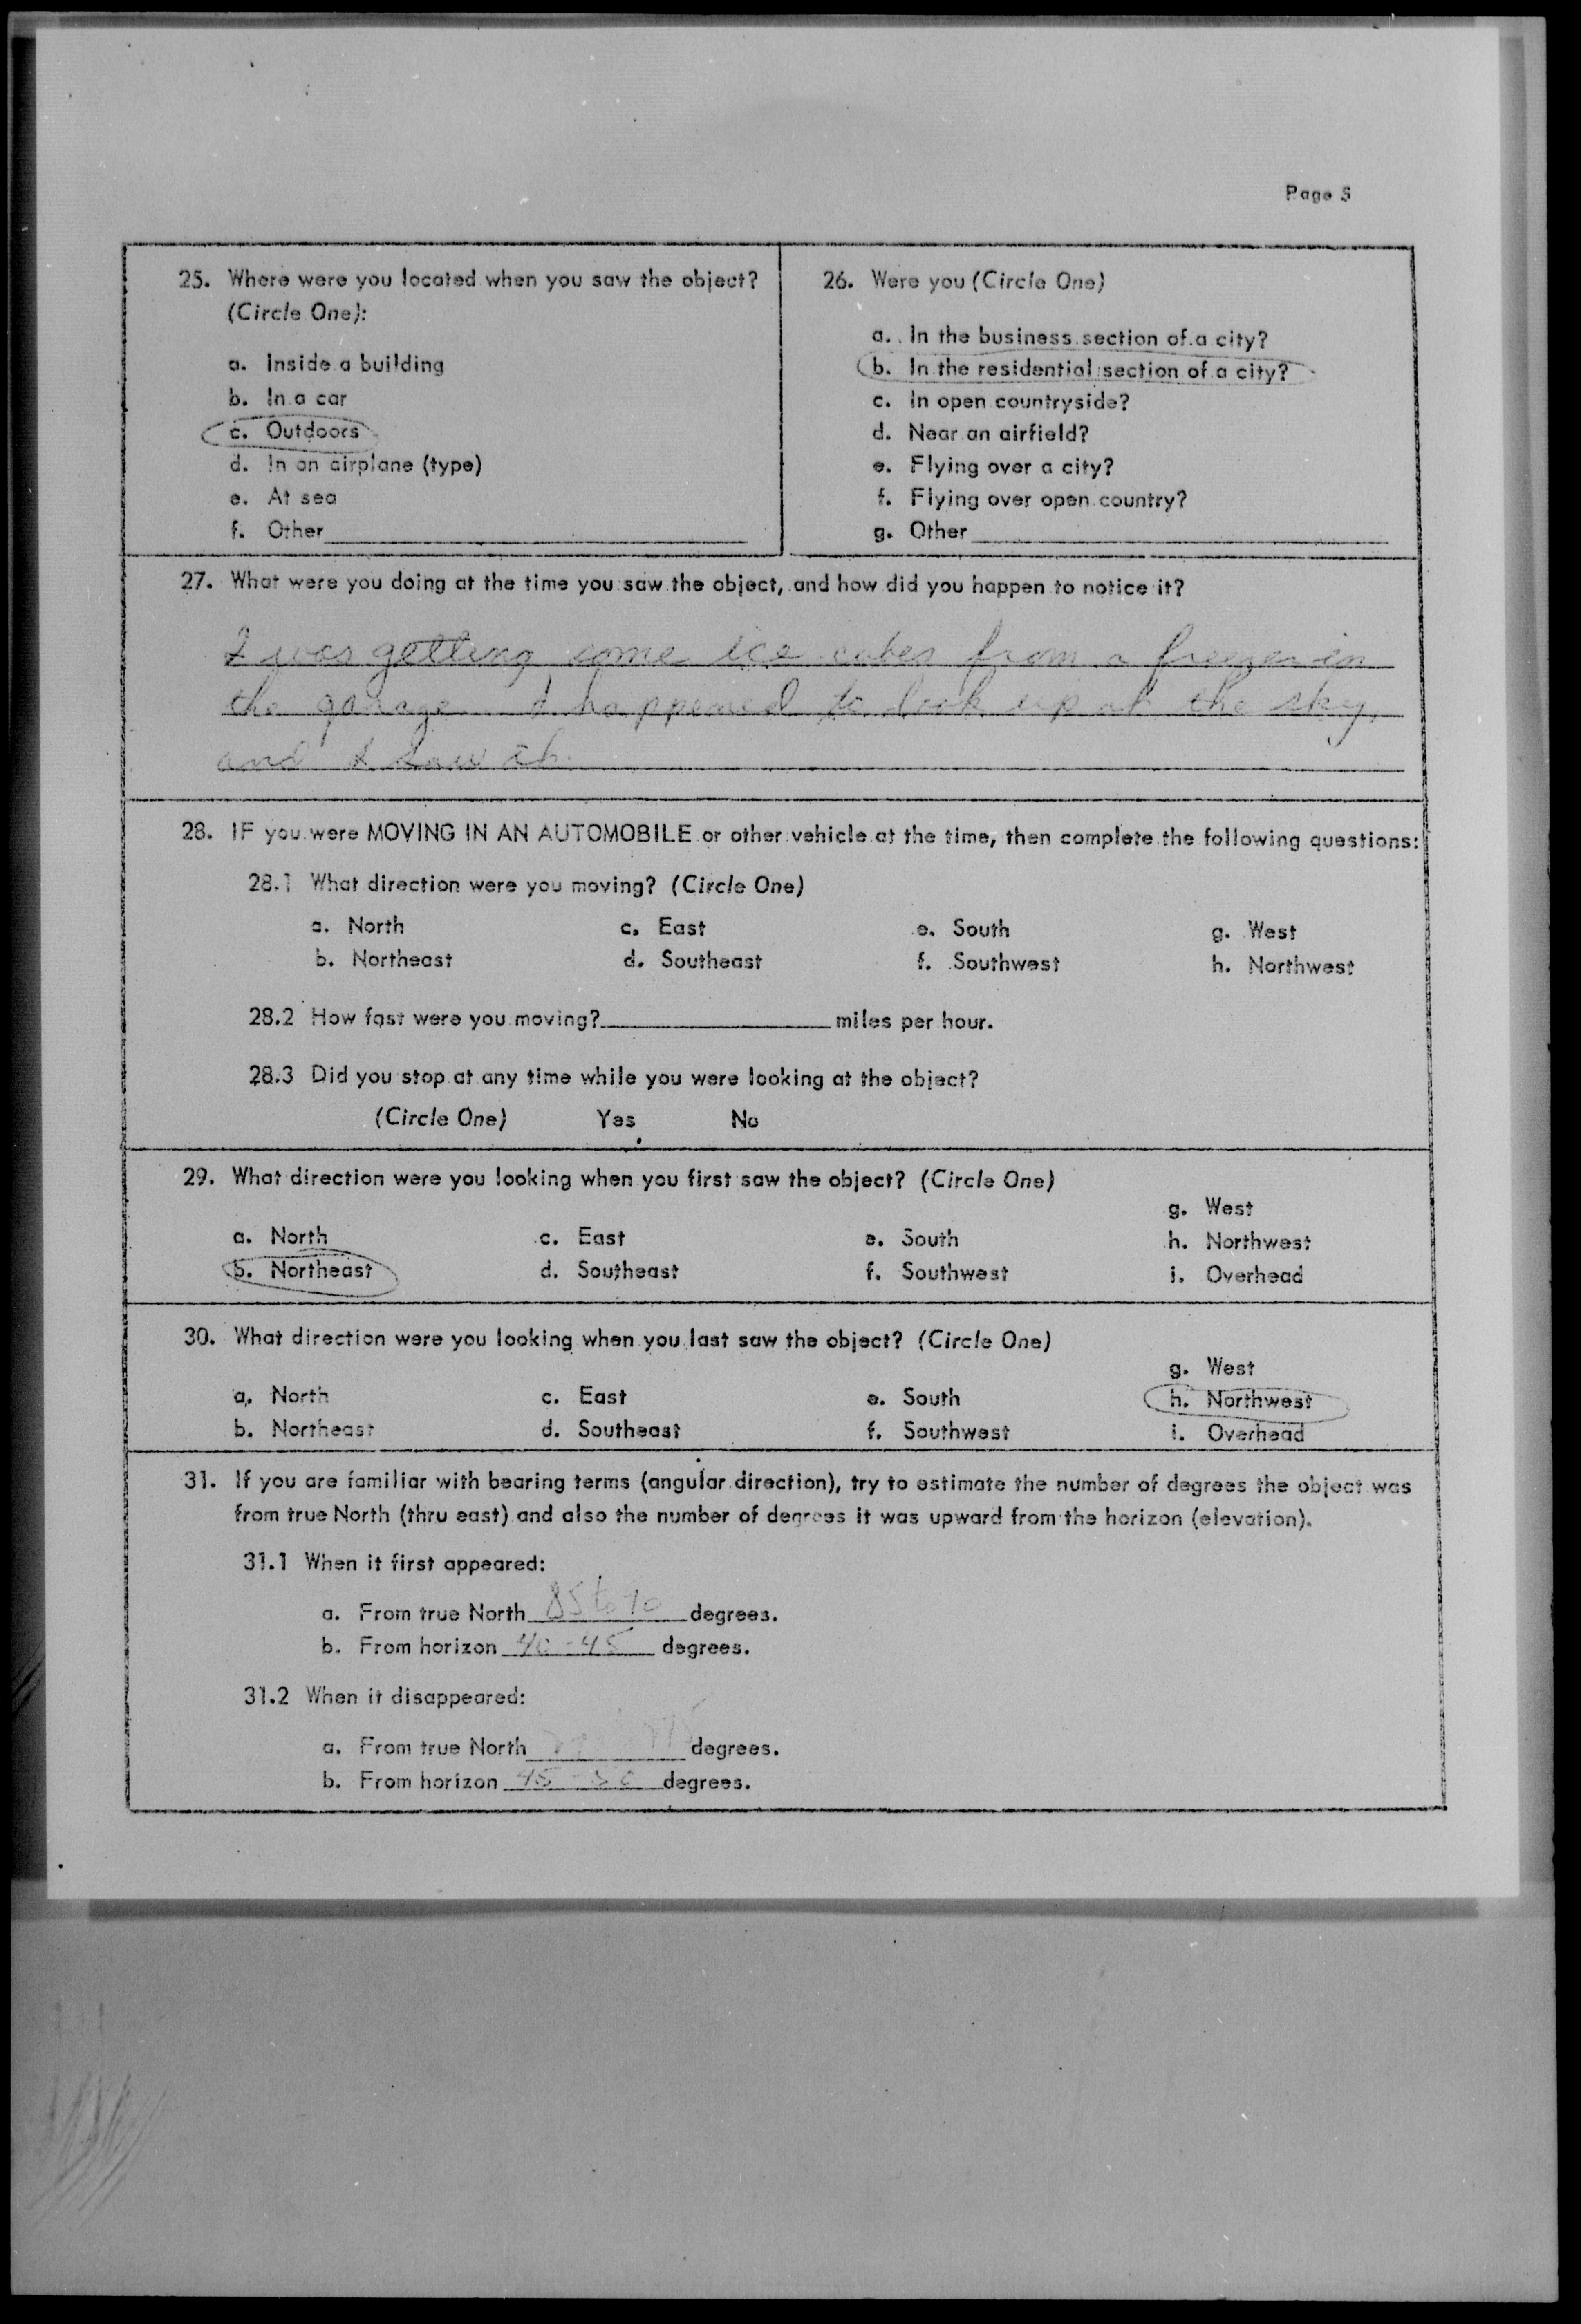 Page 5
25. Where were you located when you saw the object?
(Circle One):
a. Inside a building
b. In a car
c. Outdoors
d. In an airplane (type)
e. At sea
f. Other
26. Were you (Circle One)
a. In the business section of a city?
b. In the residential section of a city?
c. In open countryside?
d. Near an airfield?
e. Flying over a city?
f. Flying over open country?
g. Other
27. What were you doing at the time you saw the object, and how did you happen to notice it?
I was getting some ice cubes from a freezer in
the garage. I happened to look up at the sky,
and I saw it.
28. IF you were MOVING IN AN AUTOMOBILE or other vehicle at the time, then complete the following questions:
28.1 What direction were you moving? (Circle One)
a. North c. East e. South g. West
b. Northeast d. Southeast f. Southwest h. Northwest
28.2 How fast were you moving? miles per hour.
28.3 Did you stop at any time while you were looking at the object?
(Circle One) Yes No
29. What direction were you looking when you first saw the object? (Circle One)
g. West
a. North c. East e. South h. Northwest
b. Northeast d. Southeast f. Southwest i. Overhead
30. What direction were you looking when you last saw the object? (Circle One)
g. West
a. North c. East e. South h. Northwest
b. Northeast d. Southeast f. Southwest i. Overhead
31. If you are familiar with bearing terms (angular direction), try to estimate the number of degrees the object was
from true North (thru east) and also the number of degrees it was upward from the horizon (elevation).
31.1 When it first appeared:
a. From true North 85 to 90 degrees.
b. From horizon 40-45 degrees.
31.2 When it disappeared:
a. From true North degrees.
b. From horizon 45-50 degrees.